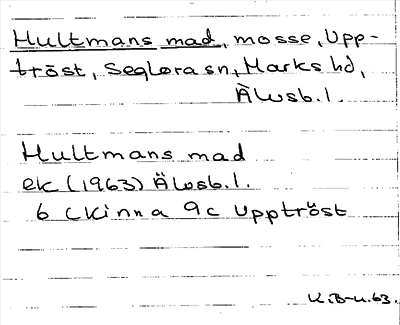 Hultmans mad, mosse, Upp-
tröst, Seglora sn, Marks hd,
Älvsb.l.
Hultmans mad
ek (1963) Älvsb.l.
6 C Kinna 9c Upptröst
K.B-u.63.